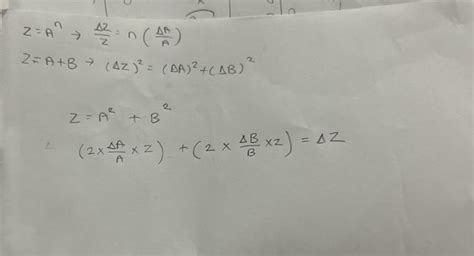 Z = Aⁿ → ΔZ/Z = n (ΔA/A)
Z = A + B → (ΔZ)² = (ΔA)² + (ΔB)²
Z = A² + B²
(2 × ΔA/A × Z) + (2 × ΔB/B × Z) = ΔZ